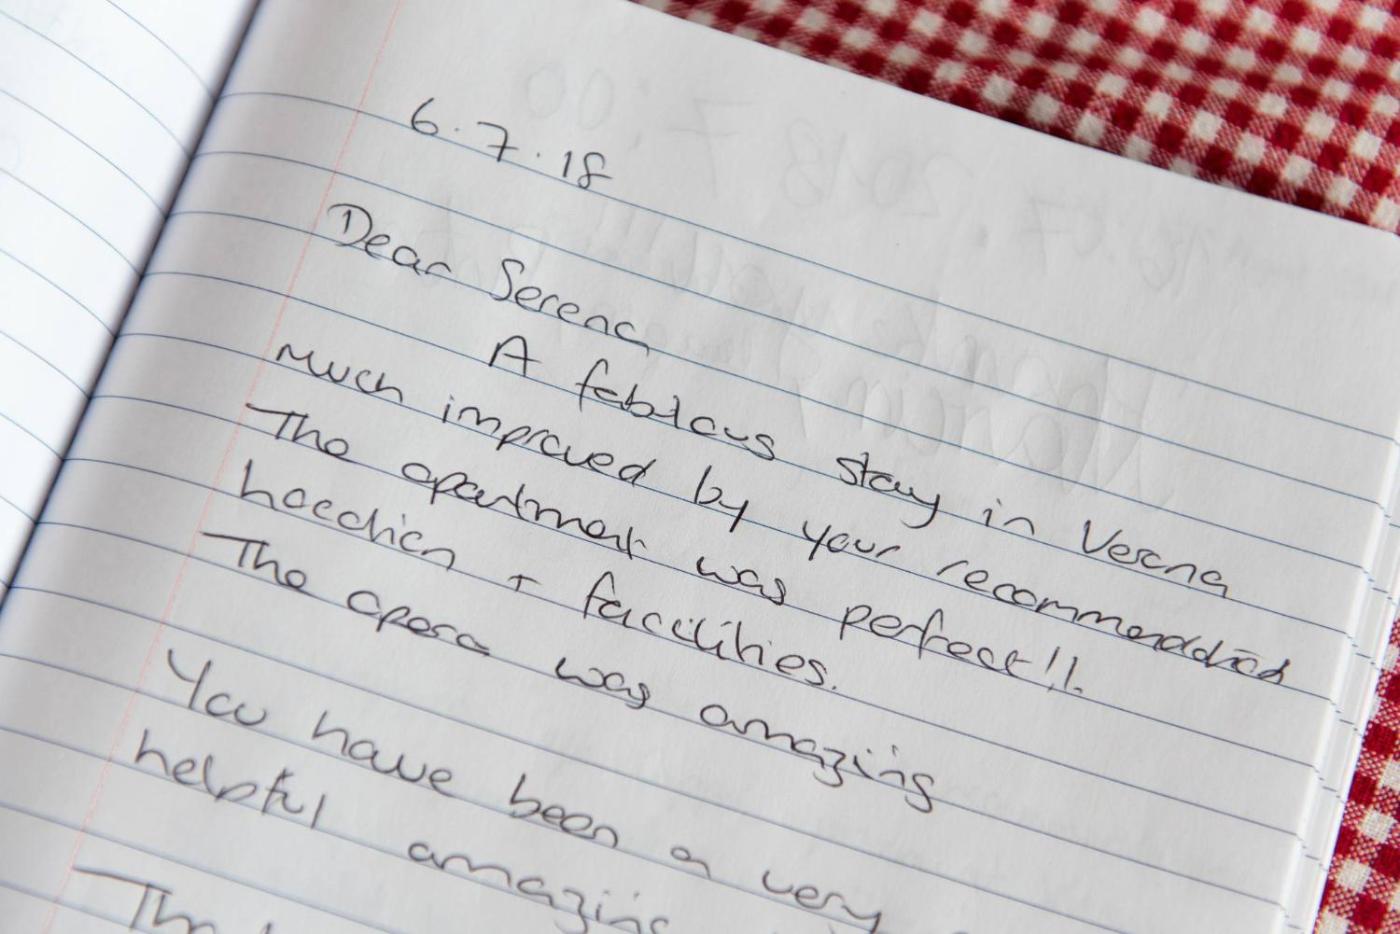 6.7.18
Dear Serena
A fablous stay in Verona
much improved by your recommendations
The apartment was perfect!!
location + facilities.
The opera was amazing
You have been a very
helpful amazing